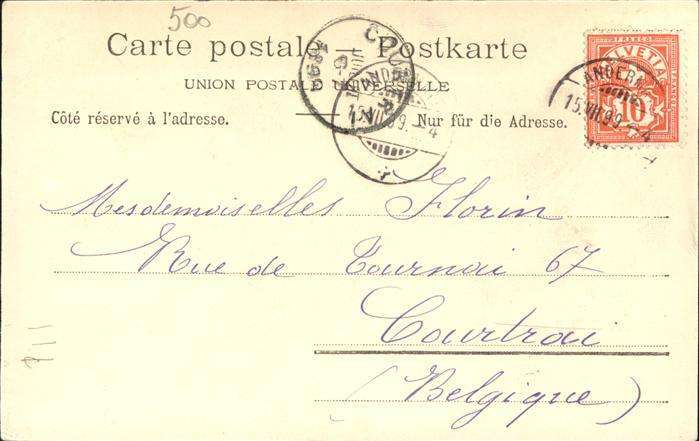 500
Carte postale — Postkarte
UNION POSTALE UNIVERSELLE
Côté réservé à l'adresse. — Nur für die Adresse.
FRANCO
HELVETIA
10
ANDERM
15.VII.99.-4
15.VII.99.-4
Mesdemoiselles Florin
Rue de Tournai 67
Courtrai
(Belgique)